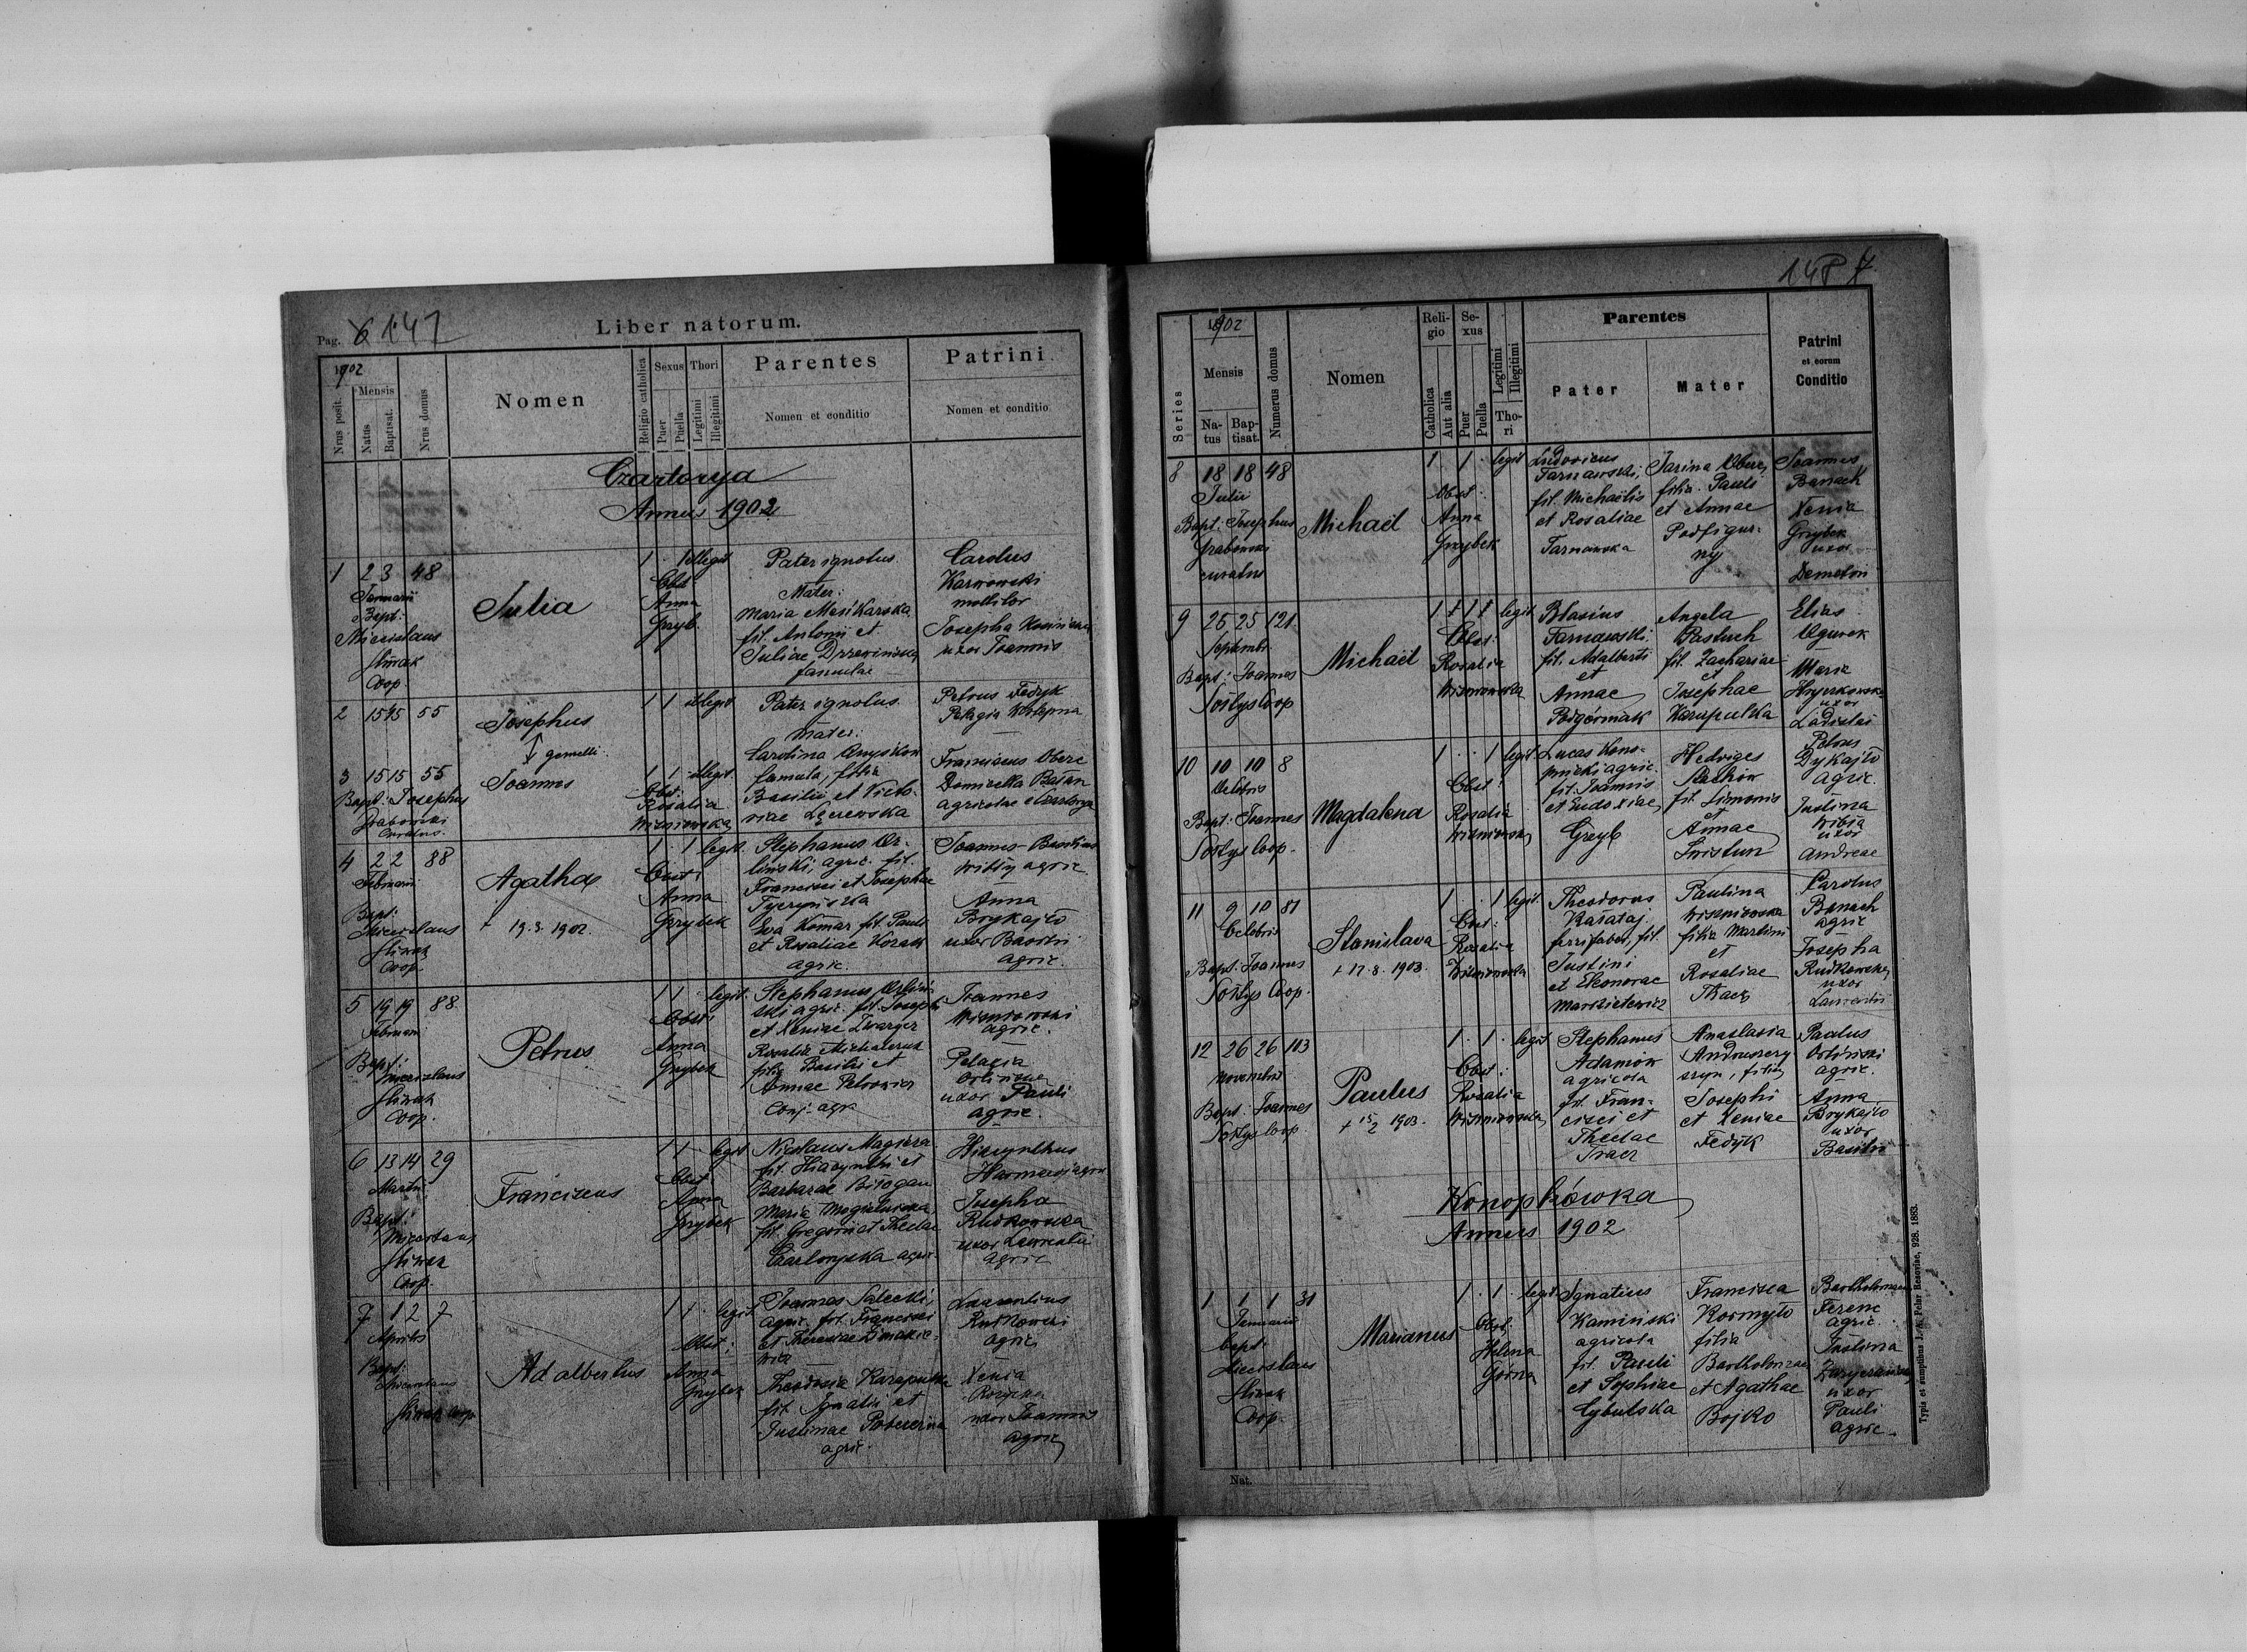 Pag. 6 147
Liber natorum.
1902
Nrus posit.
Mensis
Natus
Baptisat.
Nrus domus
Nomen
Religio catholica
Sexus
Puer
Puella
Thori
Legitimi
Illegitimi
Parentes
Nomen et conditio
Patrini
Nomen et conditio
Czartorya
Annus 1902
1 2 3 48
Januarii
Bapt:
Miecislaus
Sliwak
Coop.
Julia
1 1 illegit
Obst
Anna
Grzyb.
Pater ignotus
Mater:
Maria
fil. Antonii et
Juliae
famulae
Carolus
Karwowski
molitor
Josepha
uxor Joannis
2 15 15 55
Josephus
gemelli
1 1 illegit
Pater ignotus
Mater:
Petrus Fedyk
Pelagia
3 15 15 55
Bapt: Josephus
Grabowski
Curatus.
Joannes
1 1 illegit.
Obst:
Rosalia
Wisniowska
Carolina
famula, filia
Basilii et Victo-
riae
Franciscus Oberc
Domicella
agricolae e Czartorya
4 2 2 88
Februarii
Bapt:
Miecislaus
Sliwak
Coop
Agatha
+ 19.3. 1902.
1 1 legit.
Obst:
Anna
Grzybek
Stephanus Or-
linski, agric. fil.
Francisci et Josephae
Eva Komar fil. Pauli
et Rosaliae Kozak
agric.
Joannes
agric
Anna
Brykajło
uxor Basilii
agric.
5 19 19 88
Februarii
Bapt:
Miecislaus
Sliwak
Coop.
Petrus
1 1 legit.
Obst:
Anna
Grzybek
Stephanus Orlin-
ski agric. fil. Josephi
et Xeniae
Rosalia
filia Basilii et
Annae Petrowicz
conj. agr
Joannes
Wisniowski
agric.
Pelagia
Orlinska
uxor Pauli
agric.
6 13 14 29
Martii
Bapt:
Miecislaus
Sliwak
Coop.
Franciscus
1 1 legit
Obst
Anna
Grzybek
Nicolaus Magiera
fil. Hiacynthi et
Barbarae
Maria
fil. Gregorii et Theclae
Czartoryska agric.
Hiacynthus
agric
Josepha
Rudkowska
uxor Laurentii
agric
7 1 2 7
Aprilis
Bapt:
Miecislaus
Sliwak Coop
Adalbertus
1 1 legit
Obst:
Anna
Grzybek
Joannes Salecki,
agric. fil. Francisci
et Theresiae
Theodosia Karapulka
fil. Ignatii et
Justinae
agric.
Laurentius
Rudkowski
agric.
Xenia
uxor Joannis
agric
148 7
Series
1902
Mensis
Na-
tus
Bap-
tisat.
Numerus domus
Nomen
Reli-
gio
Catholica
Aut alia
Se-
xus
Puer
Puella
Legitimi
Illegitimi
Tho-
ri
Parentes
Pater
Mater
Patrini
et eorum
Conditio
8 18 18 48
Julii
Bapt: Josephus
Grabowski
curatus
Michaël
1 1 legit
Obst:
Anna
Grzybek
Ludovicus
Tarnawski,
fil. Michaëlis
et Rosaliae
Tarnawska
Oberc,
filia Pauli
et Annae
Podfigur-
ny
Joannes
Banach
Xenia
Grzybek
uxor
Demetrii
9 25 25 121
Septembr.
Bapt: Joannes
Sołtys Coop
Michaël
1 1 legit.
Obst:
Rosalia
Wisniowska
Blasius
Tarnawski.
fil. Adalberti
et
Annae
Podgórniak
Angela
Pastuch
fil. Zachariae
et
Josephae
Karapulka
Elias
Ogurek
Maria
uxor
Ladislai
10 10 10 8
Octobris
Bapt: Joannes
Sołtys Coop.
Magdalena
1 1 legit.
Obst:
Rosalia
Wisniowska
Lucas Kono-
pnicki agric.
fil. Joannis
et Eudoxiae
Grzyb
Hedviges
Stachów
fil. Simonis
et
Annae
Swistun
Petrus
Dykajło
agric.
Justina
uxor
Andreae
11 9 10 81
Octobris
Bapt: Joannes
Sołtys Coop.
Stanislava
+ 17.8. 1903.
1 1 legit.
Obst:
Rosalia
Wisniowska
Theodorus
Kałataj
ferrifaber, fil.
Justini
et Eleonorae
Paulina
Wisniowska
filia Martini
et
Rosaliae
Tkacz
Carolus
Banach
agric
Josepha
Rudkowska
uxor
Laurentii
12 26 26 103
Novembris
Bapt: Joannes
Sołtys Coop.
Paulus
+ 15/2 1903.
1 1 legit
Obst:
Rosalia
Wisniowska
Stephanus
Adamów
agricola
fil. Fran-
cisci et
Theclae
Tracz
Anastasia
Andruszczy-
szyn, filia
Josephi
et Xeniae
Fedyk
Paulus
Orliński
agric.
Anna
Brykajło
uxor
Basilii
Konopkówka
Annus 1902
1 1 1 31
Januarii
bapt:
Miecislaus
Sliwak
Coop.
Marianus
1 1 legit.
Obst:
Helena
Górna
Ignatius
Kamiński
agricola
fil. Pauli
et Sophiae
Cybulska
Francisca
Kormyło
filia
Bartholomaei
et Agathae
Bojko
Bartholomaeus
Ferenc
agric.
Justina
uxor
Pauli
agric.
Nat.
Typis et sumptibus J. A. Pelar Resoviae, 928. 1883.